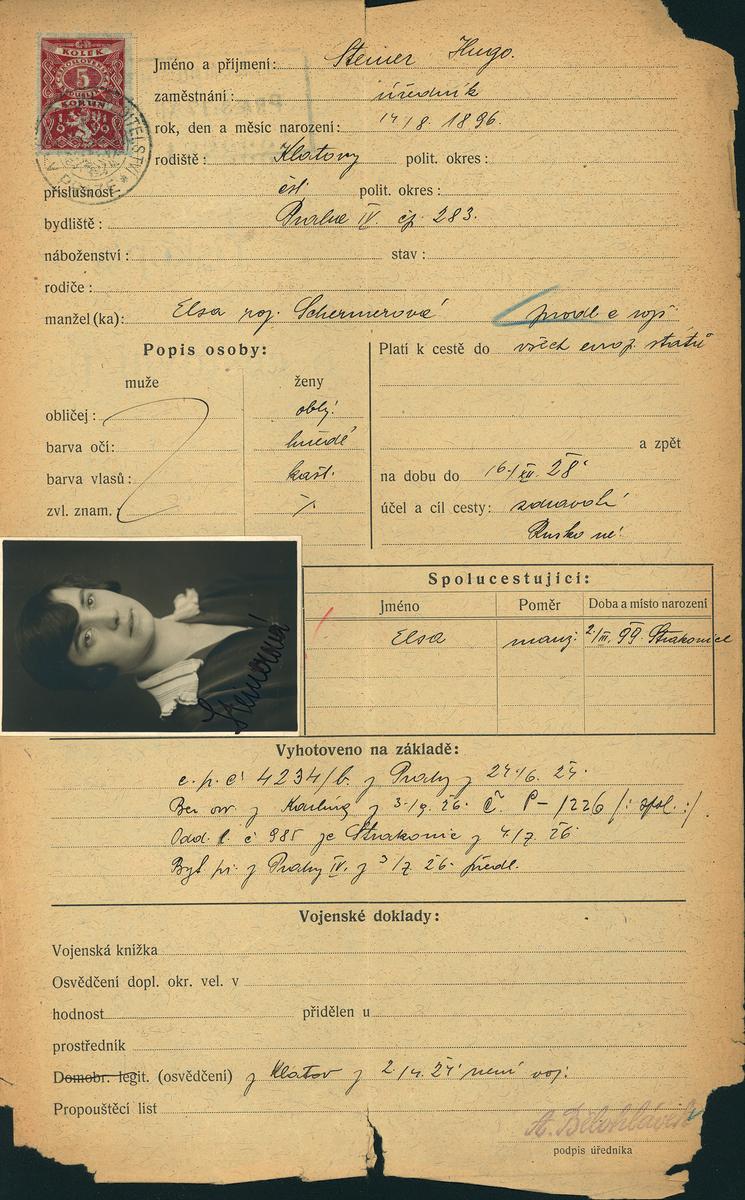 KOLEK
5
KORUN
Jméno a příjmení: Steiner Hugo.
zaměstnání: úředník
rok, den a měsíc narození: 14/8. 1896.
rodiště: Klatovy polit. okres:
příslušnost čsl. polit. okres:
bydliště: Praha IV čp. 283.
náboženství: stav:
rodiče:
manžel(ka): Elsa roz. Schermerová prodl. e
Popis osoby: Platí k cestě do všech evrop. států
muže ženy
obličej: oblý
barva očí: hnědé
a zpět
barva vlasů: kašt. na dobu do 16/XII. 28
zvl. znam.: ./. účel a cíl cesty: zdravotní
Rusko ne!
Spolucestující:
Jméno Poměr Doba a místo narození
Elsa manž. 2/III. 99 Strakonice
Steinerová
Vyhotoveno na základě:
c. p. č 4234/b. z Prahy z 24/6. 24.
Ber. z Karlína z 3/9. 26. Č. P-1226 /: spol. :/.
Odd. l. č 985 ze Strakonic z 4/7. 26
Byt. z Prahy IV. z 3/7. 26. předl.
Vojenské doklady:
Vojenská knížka
Osvědčení dopl. okr. vel. v
hodnost přidělen u
prostředník
Domobr. legit. (osvědčení) z Klatov z 2/4. 24 není voj.
Propouštěcí list
A. Bělohlávek
podpis úředníka